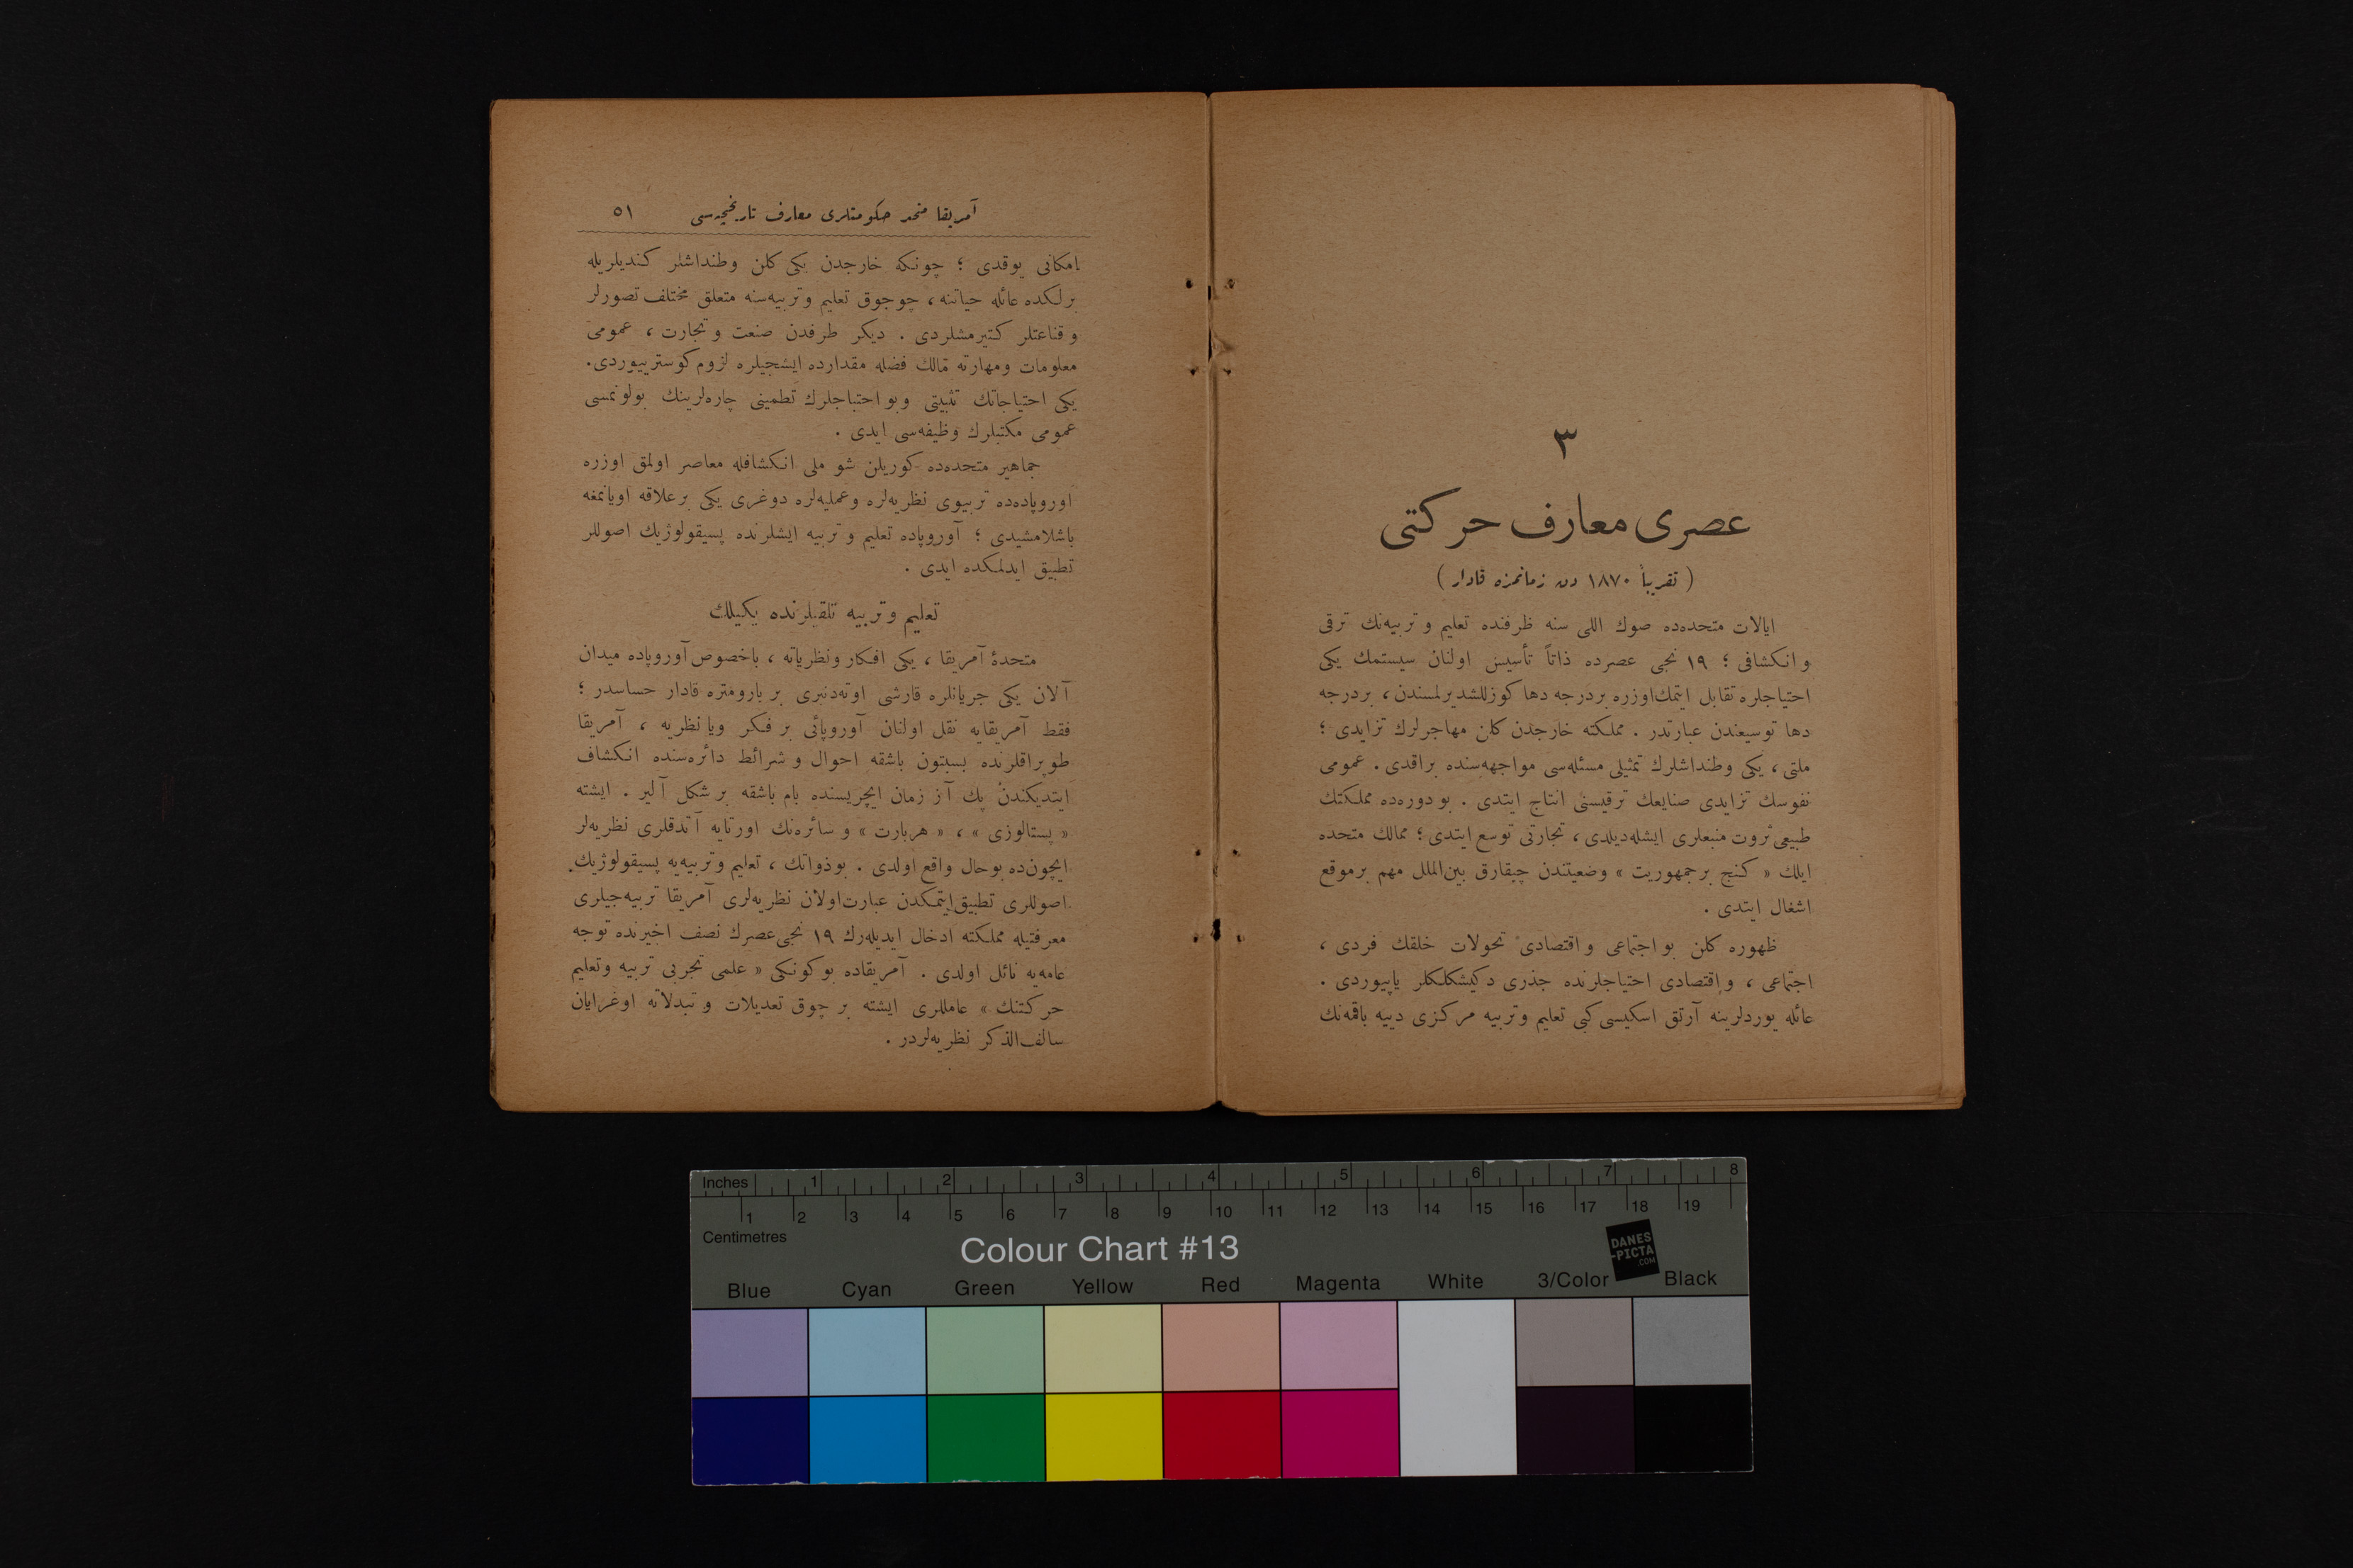 ٣
عصری معارف حركتی
( تقریباً ١٨٧٠ دن زمانمزه قادار )
ایالات متحده‌ده صوك اللی سنه ظرفنده تعلیم و تربیه‌نك ترقی
و انكشافی ؛ ١٩ نجی عصرده ذاتاً تأسیس اولنان سیستمك یكی
احتیاجلره تقابل ایتمك اوزره بردرجه دها كوزللشدیرلمسندن ، بردرجه
دها توسیعندن عبارتدر . مملكته خارجدن كلن مهاجرلرك تزایدی ؛
ملتی ، یكی وطنداشلرك تمثیلی مسئله‌سی مواجهه‌سنده براقدی . عمومی
نفوسك تزایدی صنایعك ترقیسنی انتاج ایتدی . بو دوره‌ده مملكتك
طبیعی ثروت منبعلری ایشله‌دیلدی ، تجارتی توسع ایتدی ؛ ممالك متحده
ایلك « كنج برجمهوریت » وضعیتندن چیقارق بین‌الملل مهم برموقع
اشغال ایتدی .
ظهوره كلن بو اجتماعی و اقتصادی تحولات خلقك فردی ،
اجتماعی ، و اقتصادی احتیاجلرنده جذری دكیشكلكلر یاپیوردی .
عائله یوردلرینه آرتق اسكیسی كبی تعلیم و تربیه مركزی دییه باقمه‌نك
آمریقا متحد حكومتلری معارف تاریخچه‌سی ٥١
امكانی یوقدی ؛ چونكه خارجدن یكی كلن وطنداشلر كندیلریله
برلكده عائله حیاتنه ، چوجوق تعلیم و تربیه‌سنه متعلق مختلف تصورلر
و قناعتلر كتیرمشلردی . دیكر طرفدن صنعت و تجارت ، عمومی
معلومات ومهارته مالك فضله مقدارده ایشجیلره لزوم كوسترییوردی .
یكی احتیاجاتك تثبیتی وبو احتیاجلرك تطمینی چاره‌لرینك بولونمسی
عمومی مكتبلرك وظیفه‌سی ایدی .
جماهیر متحده‌ده كوریلن شو ملی انكشافله معاصر اولمق اوزره
اوروپاده‌ده تربیوی نظریه‌لره وعملیه‌لره دوغری یكی بر علاقه اویانمغه
باشلامشیدی ؛ آوروپاده تعلیم و تربیه ایشلرنده پسیقولوژیك اصوللر
تطبیق ایدلمكده ایدی .
تعلیم و تربیه تلقیلرنده یكیلك
متحدهٔ آمریقا ، یكی افكار ونظریاته ، باخصوص آوروپاده میدان
آلان یكی جریانلره قارشی اوته‌دنبری بر بارومتره قادار حساسدر ؛
فقط آمریقایه نقل اولنان آوروپائی بر فكر ویا نظریه ، آمریقا
طوپراقلرنده بسبتون باشقه احوال و شرائط دائره‌سنده انكشاف
ایتدیكندن پك آز زمان ایچریسنده بام باشقه بر شكل آلیر . ایشته
« پستالوزی » ، « هربارت » و سائره‌نك اورتایه آتدقلری نظریه‌لر
ایچون‌ده بوحال واقع اولدی . بوذواتك ، تعلیم وتربیه‌یه پسیقولوژیك
اصوللری تطبیق ایتمكدن عبارت اولان نظریه‌لری آمریقا تربیه‌جیلری
معرفتیله مملكته ادخال ایدیله‌رك ١٩ نجی عصرك نصف اخیرنده توجه
عامه‌یه نائل اولدی . آمریقاده بوكونكی « علمی تجربی تربیه وتعلیم
حركتنك » عامللری ایشته بر چوق تعدیلات و تبدلاته اوغرایان
سالف‌الذكر نظریه‌لردر .
Inches 1 2 3 4 5 6 7 8
1 2 3 4 5 6 7 8 9 10 11 12 13 14 15 16 17 18 19
Centimetres
Colour Chart #13
DANES
-PICTA
.COM
Blue Cyan Green Yellow Red Magenta White 3/Color Black